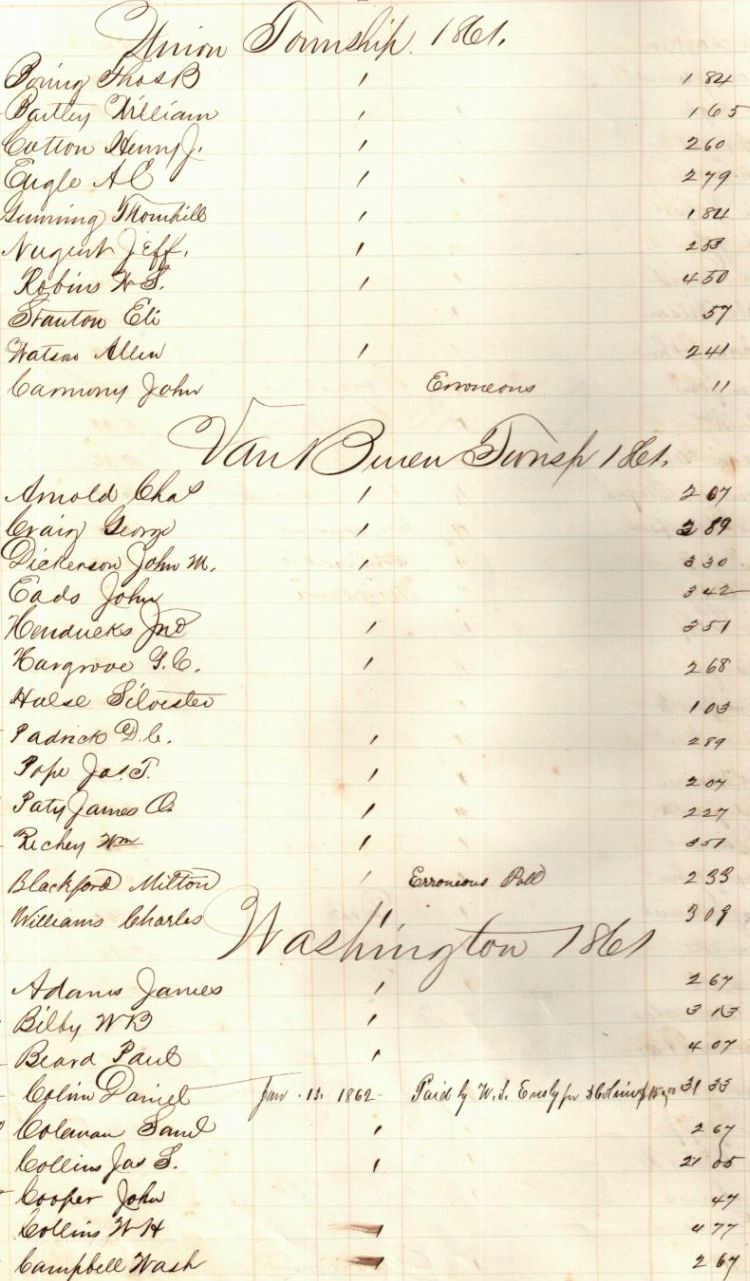 Union Township. 1861.
Boring Thos B 〃 1 84
Bartley William 〃 1 65
Cotton Henry J. 〃 2 60
Eagle A C 〃 2 79
Gunning Thornhill 〃 1 84
Nugent Jeff. 〃 2 53
Robins W S. 〃 4 50
Stanton Eli 57
Watson Allen 〃 2 41
Carmony John Erroneous 11
Van Buren Twnsp 1861.
Arnold Chas 〃 2 67
Craig George 〃 3 89
Dickerson John M. 〃 3 30
Eads John 3 42
Hendricks Jno 〃 3 51
Hargrove G. C. 〃 2 68
Hulse Silvester 1 03
Padrick D. C. 〃 2 89
Pope Jas. T. 〃 2 07
Paty James O. 〃 2 27
Richey Wm 〃 3 51
Blackford Milton 〃 Erroneous Poll 2 33
Williams Charles 〃 3 09
Washington 1861
Adams James 〃 2 67
Bilby W B 〃 3 13
Beard Paul 〃 4 07
Colvin Daniel Jan. 13. 1862 Paid by W. S. for 31 33
Coleman Saml 〃 2 67
Collins Jas S. 〃 21 05
Cooper John 47
Collins W H 〃 4 77
Campbell Wash 〃 2 67